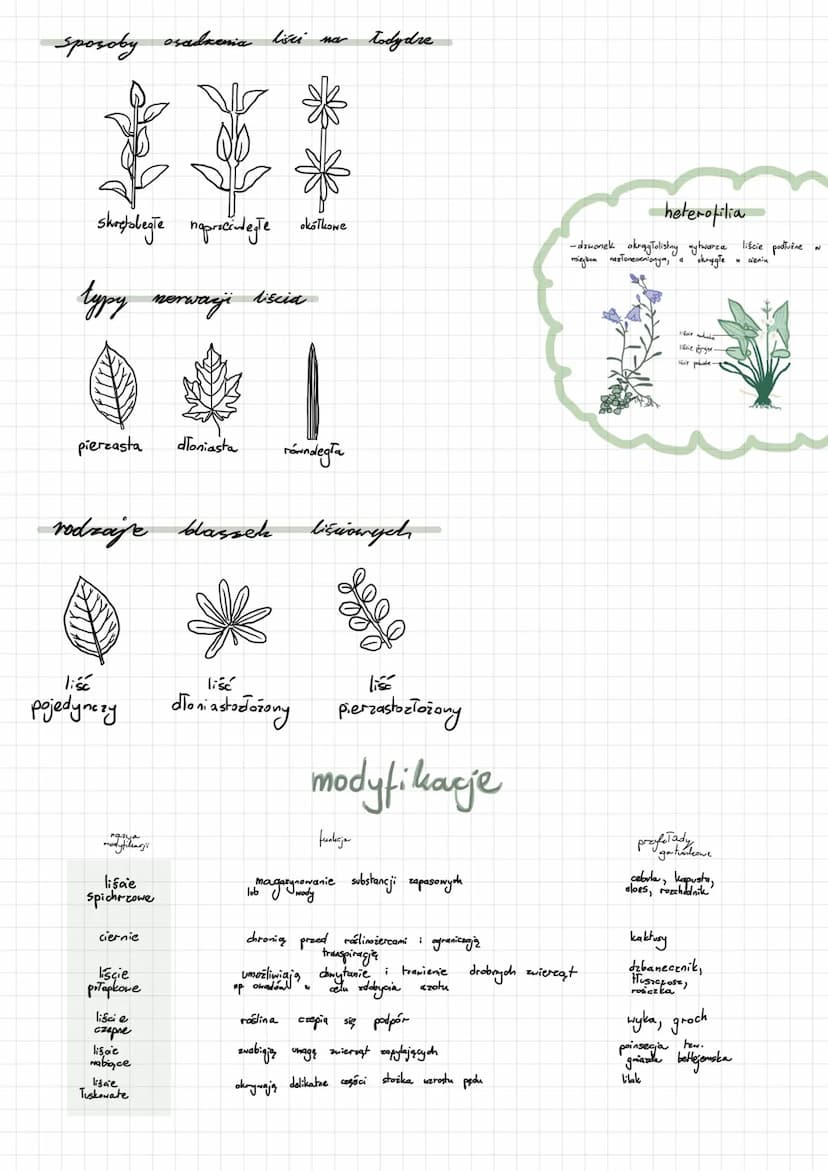 sposoby osadzenia liści na łodydze
skrętoległe naprzeciwległe okółkowe
heterofilia
- dzwonek okrągłolistny wytwarza liście podłużne w
miejscu nasłonecznionym, a okrągłe w cieniu
liście
liście
liście
typy nerwacji liścia
pierzasta dłoniasta równoległa
rodzaje blaszek liściowych
liść pojedynczy
liść dłoniastozłożony
liść pierzastozłożony
modyfikacje
nazwa modyfikacji
funkcja
przykłady gatunkowe
liście spichrzowe
magazynowanie substancji zapasowych
lub wody
cebula, kapusta,
aloes, rozchodnik
ciernie
chronią przed roślinożercami i ograniczają
transpirację
kaktusy
liście pułapkowe
umożliwiają chwytanie i trawienie drobnych zwierząt
np owadów w celu zdobycia azotu
dzbanecznik,
tłustosz,
rosiczka
liście czepne
roślina czepia się podpór
wyka, groch
liście wabiące
zwabiają uwagę zwierząt zapylających
poinsecja tzw.
gwiazda betlejemska
liście łuskowate
okrywają delikatne części stożka wzrostu pędu
lilak